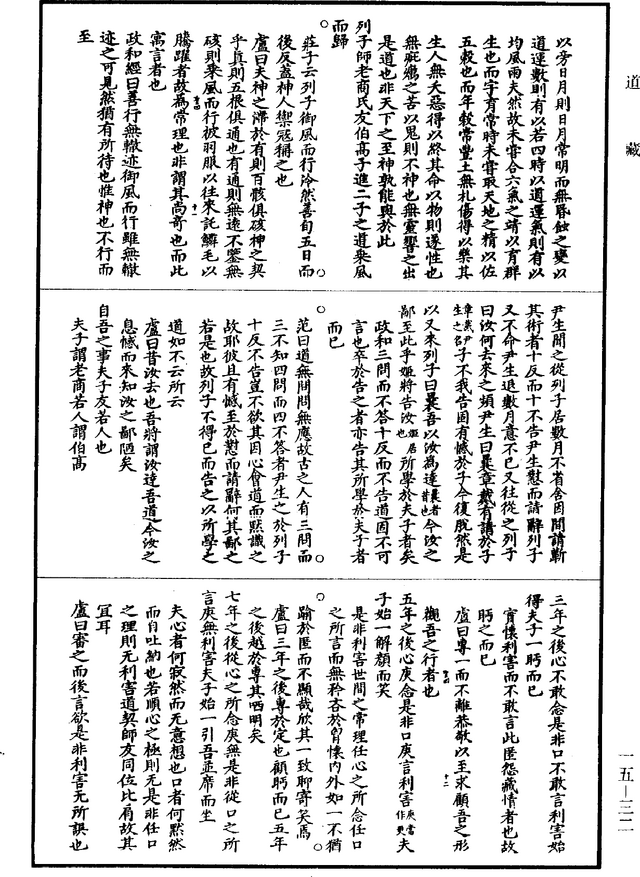 道藏
以旁日月則日月常明而無昏蝕之變以
道運數則有以若四時以道運氣則有以
均風雨夫然故未嘗合六氣之靖以育群
生也而字育常時未嘗取天地之精以佐
五穀也而年穀常豐土無札傷得以樂其
生人無夭惡得以終其命以物則遂性也
無疵癘之苦以鬼則不神也無靈響之出
是道也非天下之至神孰能與於此
列子師老商氏友伯高子進二子之道乘風
而歸
莊子云列子御風而行泠然善旬五日而
後反蓋神人禦寇稱之也
盧曰夫神之滯於有則百骸俱碍神之契
乎真則五根俱通也有通則無遠不鑒無
碍則乘風而行被羽服以往來託鱗毛以
騰躍者故為常理也非謂其尚奇也而此
寓言者也
政和經曰善行無轍迹御風而行雖無轍
迹之可見然猶有所待也惟神也不行而
至
尹生聞之從列子居數月不省舍因間請蘄
其術者十反而十不告尹生懟而請辭列子
又不命尹生退數月意不已又往從之列子
曰汝何去來之頻尹生曰曩章戴有請於子
章戴尹生之名子不我告固有憾於子今復脫然是
以又來列子曰曩吾以汝為達曩者昔也今汝之
鄙至此乎姬將告汝姬居也所學於夫子者矣
政和三問而不答十反而不告道固不可
言也卒於告之者亦告其所學於夫子者
而已
范曰道無問問無應故古之人有三問而
三不知四問而四不答者尹生之於列子
十反不告豈不欲其因心會道而黙識之
故耶彼且有憾至於懟而請辭何其鄙之
若是也故列子不得已而告之以所學之
道如不云所云
盧曰昔汝去也吾將謂汝達吾道今汝之
息憾而來知汝之鄙陋矣
自吾之事夫子友若人也
夫子謂老商若人謂伯高
三年之後心不敢念是非口不敢言利害始
得夫子一眄而已
實懷利害而不敢言此匿怨藏情者也故
眄之而已
盧曰專一而不離恭敬以至求顧吾之形
觀吾之行者也
五年之後心庚念是非口庚言利害庚當作更夫
子始一解顏而笑
是非利害世間之常理任心之所念任口
之所言而無矜吝於胷懷内外如一不猶
踰於匿而不顯哉欣其一致聊寄笑焉
盧曰三年之後專於定也顧眄而已五年
之後越於專其哂明矣
七年之後從心之所念庚無是非從口之所
言庚無利害夫子始一引吾並席而坐
夫心者何寂然而无意想也口者何黙然
而自吐納也若順心之極則无是非任口
之理則无利害道契師友同位比肩故其
宜耳
盧曰審之而後言欲是非利害无所誤也
一五—三二